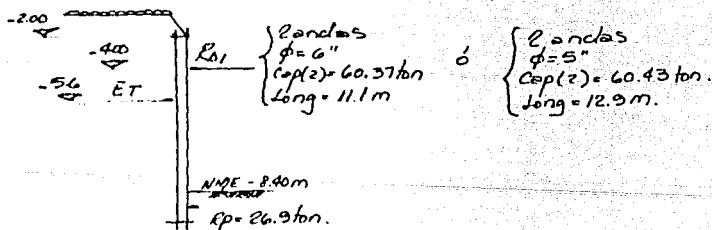 -2.00
-4.00
-5.6 ET
RΔ1
2 anclas
φ = 6"
Cap(2) = 60.37 ton
Long = 11.1 m
ó
2 anclas
φ = 5"
Cap(2) = 60.43 ton.
Long = 12.9 m.
NME - 8.40 m
RP = 26.9 ton.